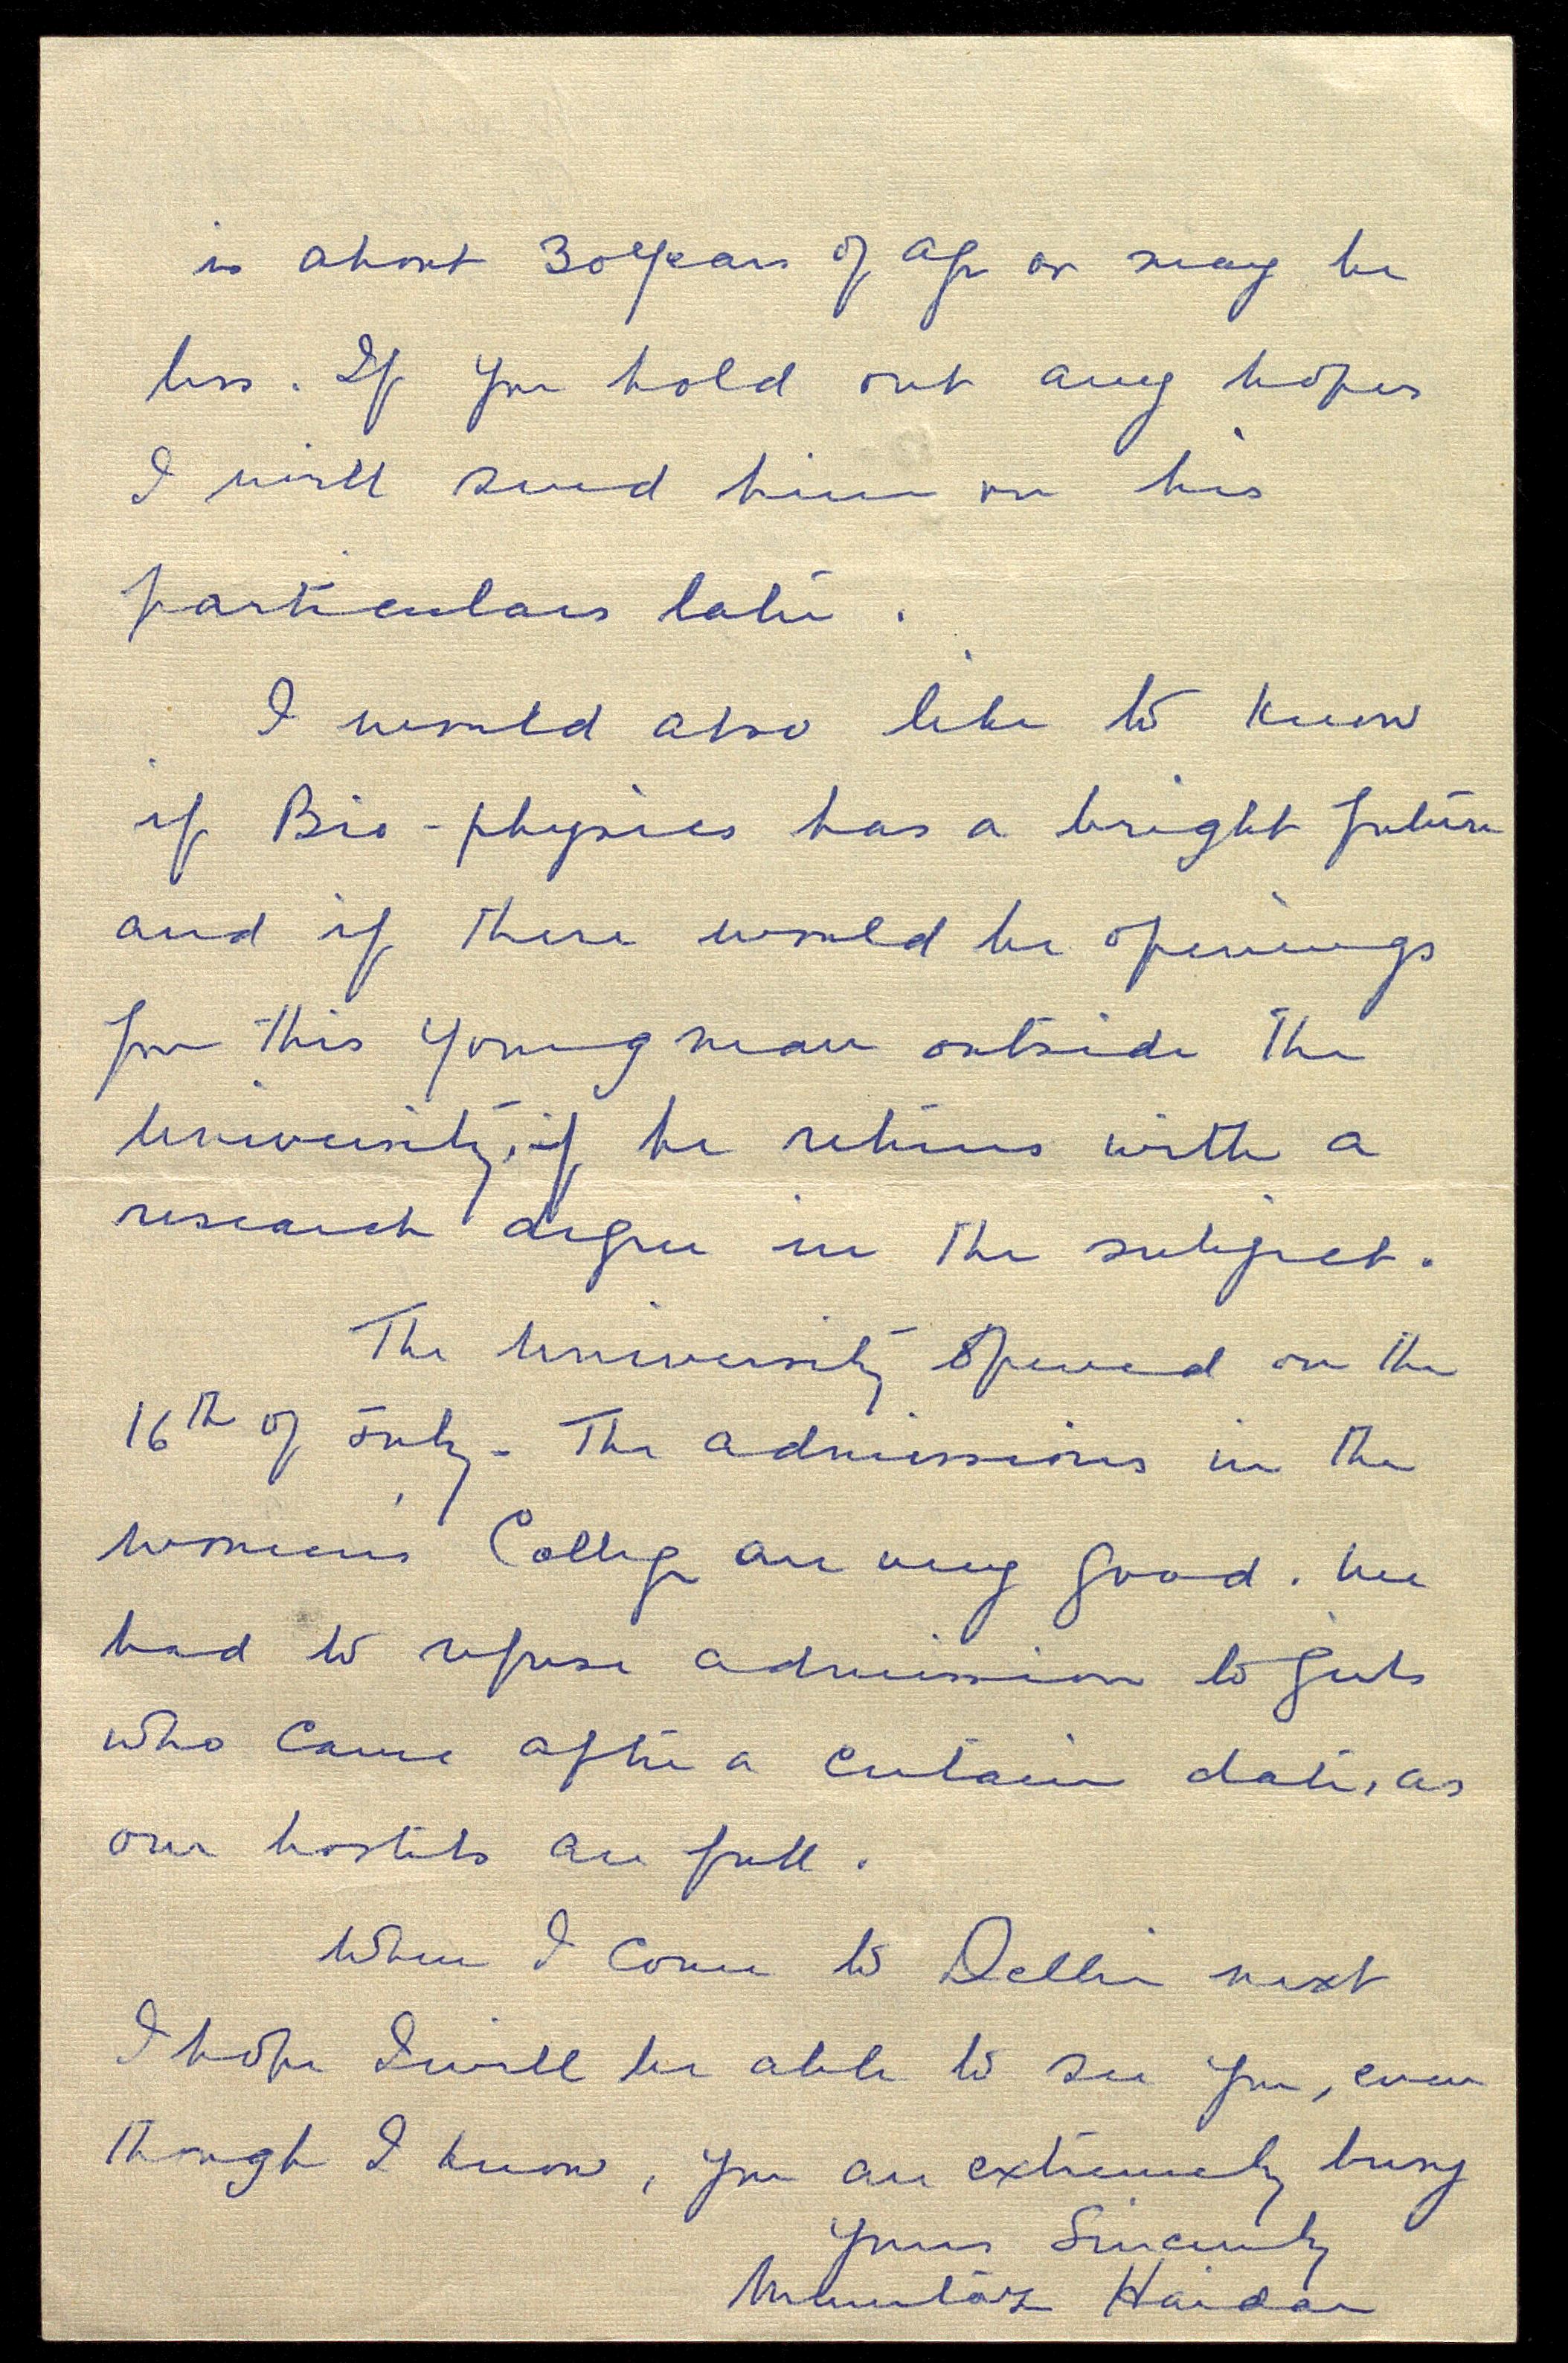 is about 30 years of age or may be
less. If you hold out any hopes
I will send him on his
particulars later.
I would also like to know
if Bio-physics has a bright future
and if there would be openings
for this young man outside the
University, if he returns with a
research degree in the subject.
The University opened on the
16th of July. The admissions in the
Women's College are very good. We
had to refuse admission to girls
who came after a certain date, as
our hostels are full.
When I come to Delhi next
I hope I will be able to see you, even
though I know, you are extremely busy
Yours Sincerely
Mumtaz Haidar